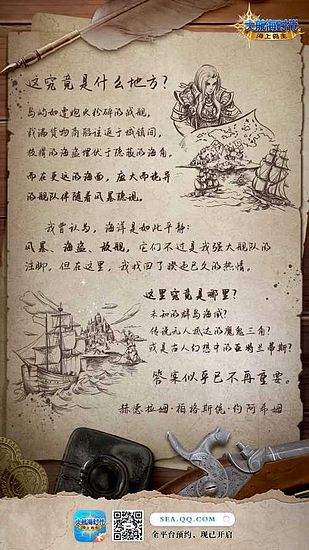 大航海时代
海上霸主
这究竟是什么地方?
岛屿如遭炮火粉碎的战舰,
载满货物商船往返于城镇间,
狡猾的海盗埋伏于隐蔽的海角,
而在更远的海面,庞大而诡异
的舰队伴随着风暴隐现。
我曾认为,海洋是如此平静:
风暴、海盗、敌舰,它们不过是我强大舰队的
注脚。但在这里,我找回了揆违已久的热情。
这里究竟是哪里?
未知的群岛海域?
传说无人抵达的魔鬼三角?
或是古人幻想中的亚特兰蒂斯?
答案似乎已不再重要。
赫德拉姆·柏格斯统·约阿希姆
大航海时代
SEA.QQ.COM
全平台预约,现已开启